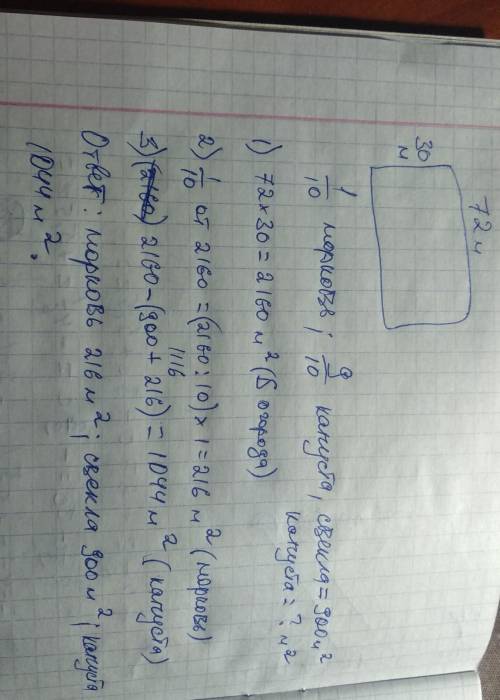 72 м
30 м
1/10 морковь; 9/10 капуста, свекла = 900 м²
капуста = ? м²
1) 72 × 30 = 2160 м² (S огорода)
2) 1/10 от 2160 = (2160 : 10) × 1 = 216 м² (морковь)
1116
3) (2160) 2160 - (900 + 216) = 1044 м² (капуста)
Ответ: морковь 216 м²; свекла 900 м²; капуста
1044 м².